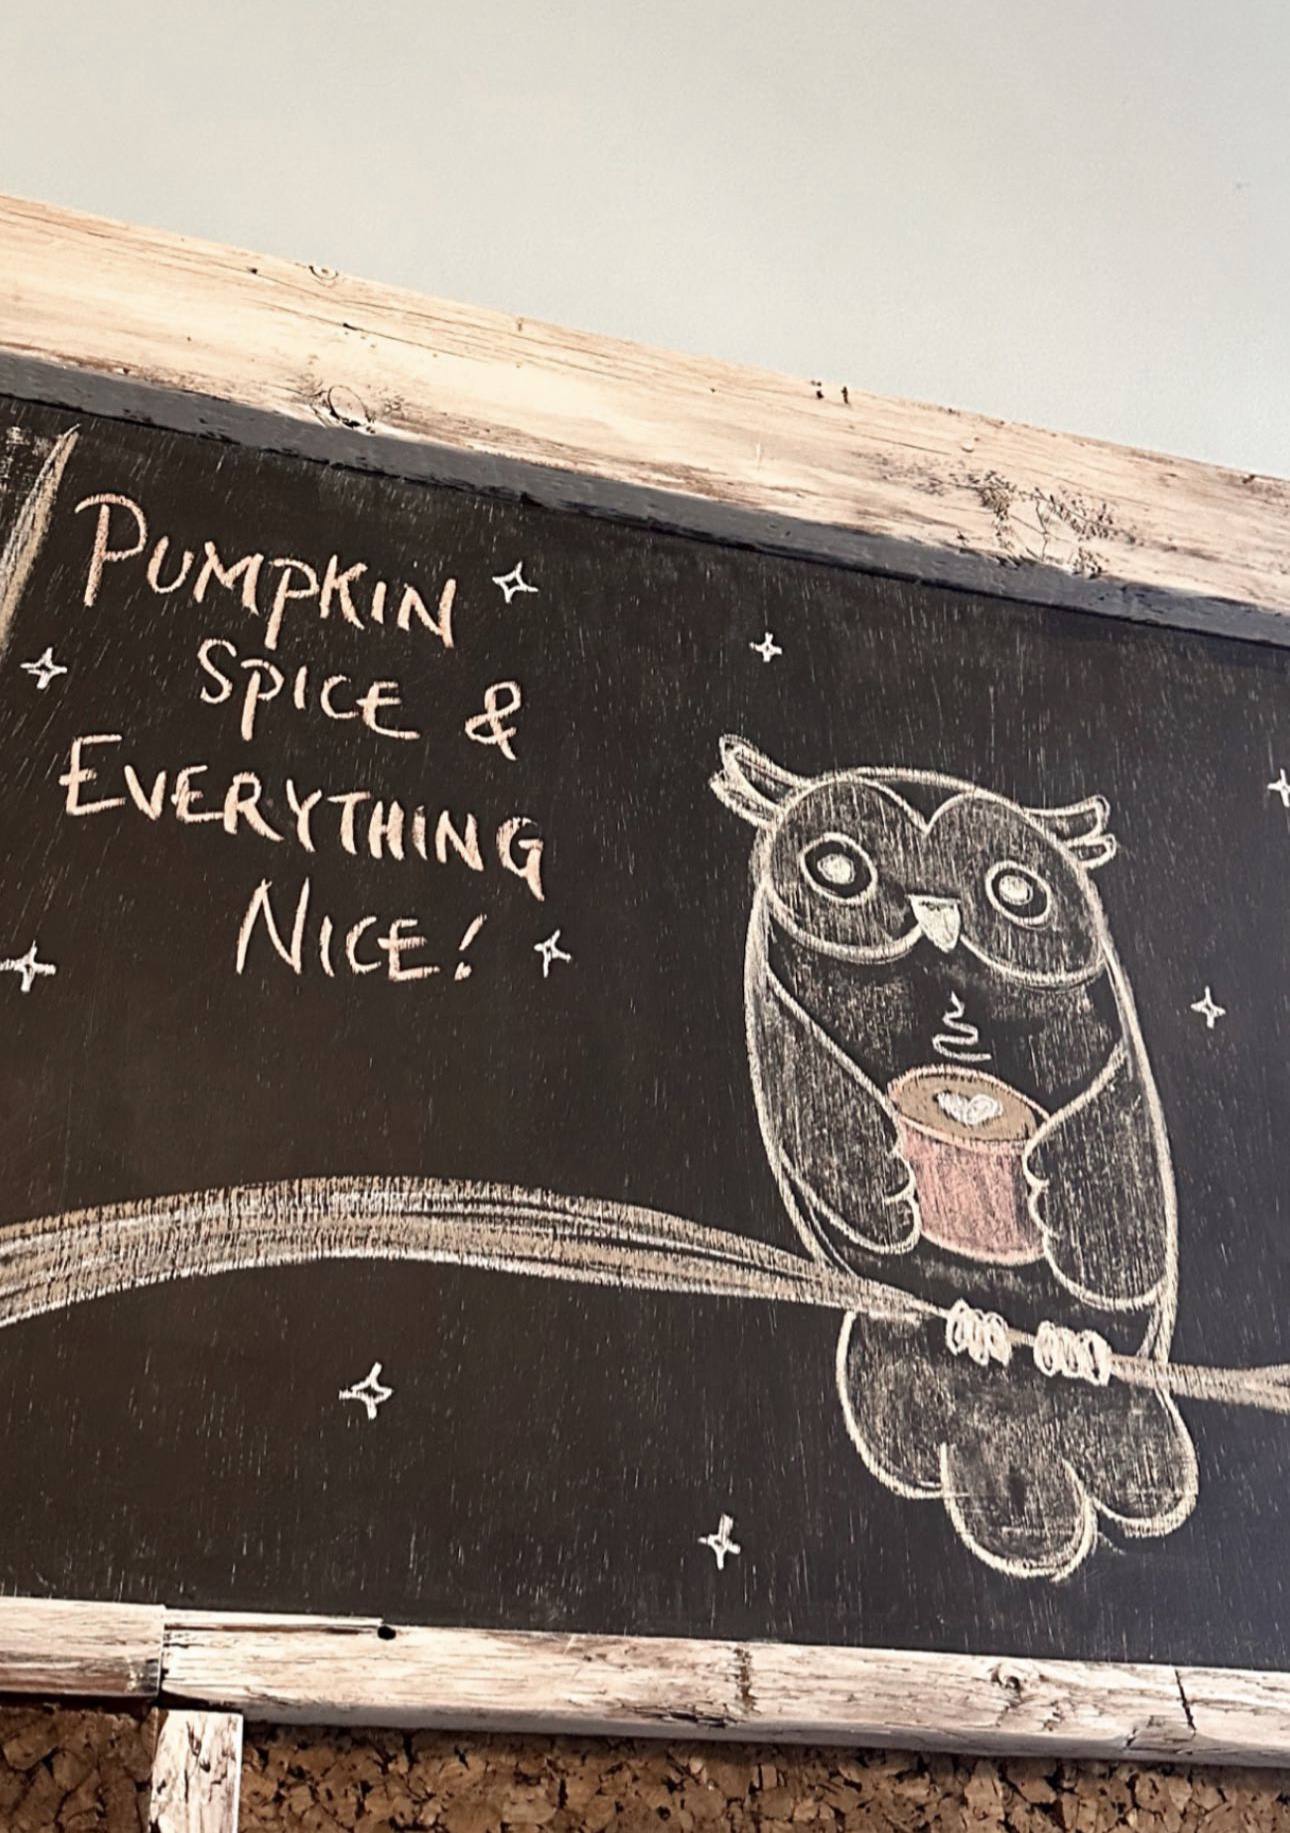 PUMPKIN
SPICE &
EVERYTHING
NICE!